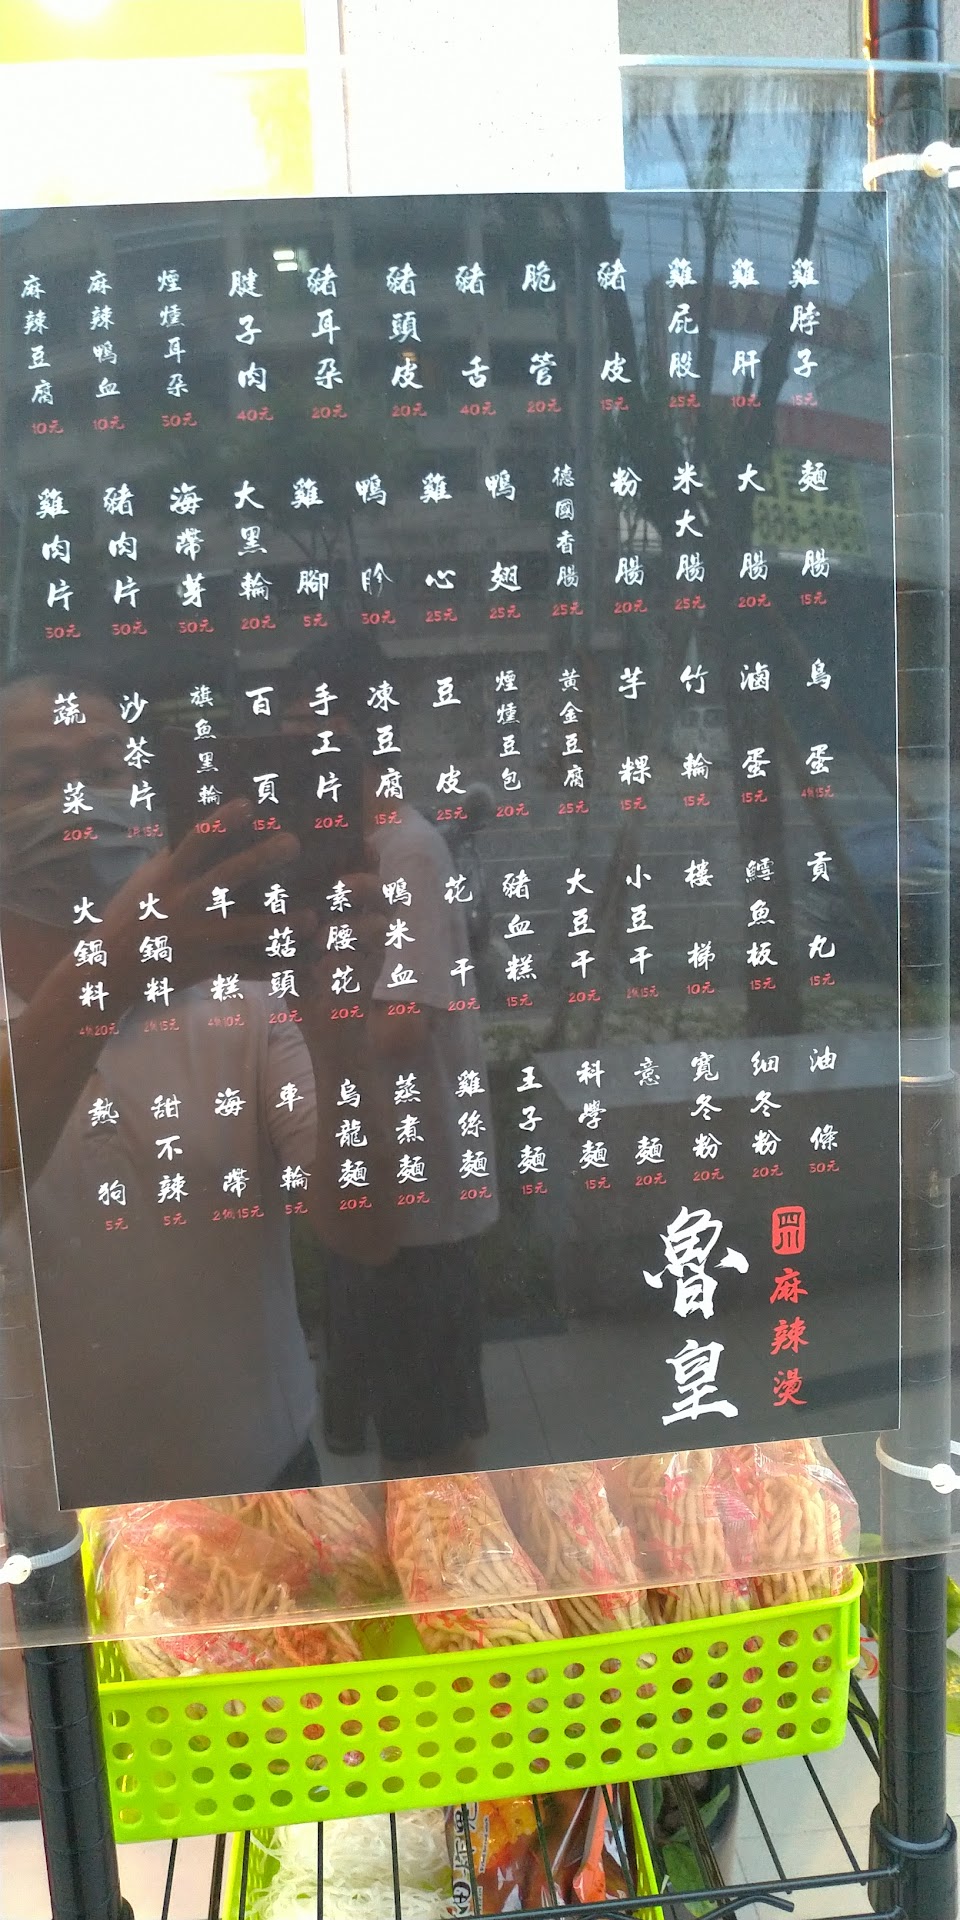 雞脖子 15元
雞肝 10元
雞屁股 25元
豬皮 15元
脆管 20元
豬舌 40元
豬頭皮 20元
豬耳朵 20元
腱子肉 40元
煙燻耳朵 30元
麻辣鴨血 10元
麻辣豆腐 10元
麵腸 15元
大腸 20元
米大腸 25元
粉腸 20元
德國香腸 25元
鴨翅 25元
雞心 25元
鴨肫 30元
雞腳 5元
大黑輪 20元
海帶芽 30元
豬肉片 30元
雞肉片 30元
鳥蛋 4個15元
滷蛋 15元
竹輪 15元
芋粿 15元
黃金豆腐 25元
煙燻豆包 20元
豆皮 25元
凍豆腐 15元
手工片 20元
百頁 15元
旗魚黑輪 10元
沙茶片 2片15元
蔬菜 20元
貢丸 15元
鱈魚板 15元
樓梯 10元
小豆干 2個15元
大豆干 20元
豬血糕 15元
花干 20元
鴨米血 20元
素腰花 20元
香菇頭 20元
年糕 4個10元
火鍋料 2個15元
火鍋料 4個20元
油條 30元
細冬粉 20元
寬冬粉 20元
意麵 20元
科學麵 15元
王子麵 15元
雞絲麵 20元
蒸煮麵 20元
烏龍麵 20元
車輪 5元
海帶 2個15元
甜不辣 5元
熱狗 5元
四川麻辣燙
魯皇